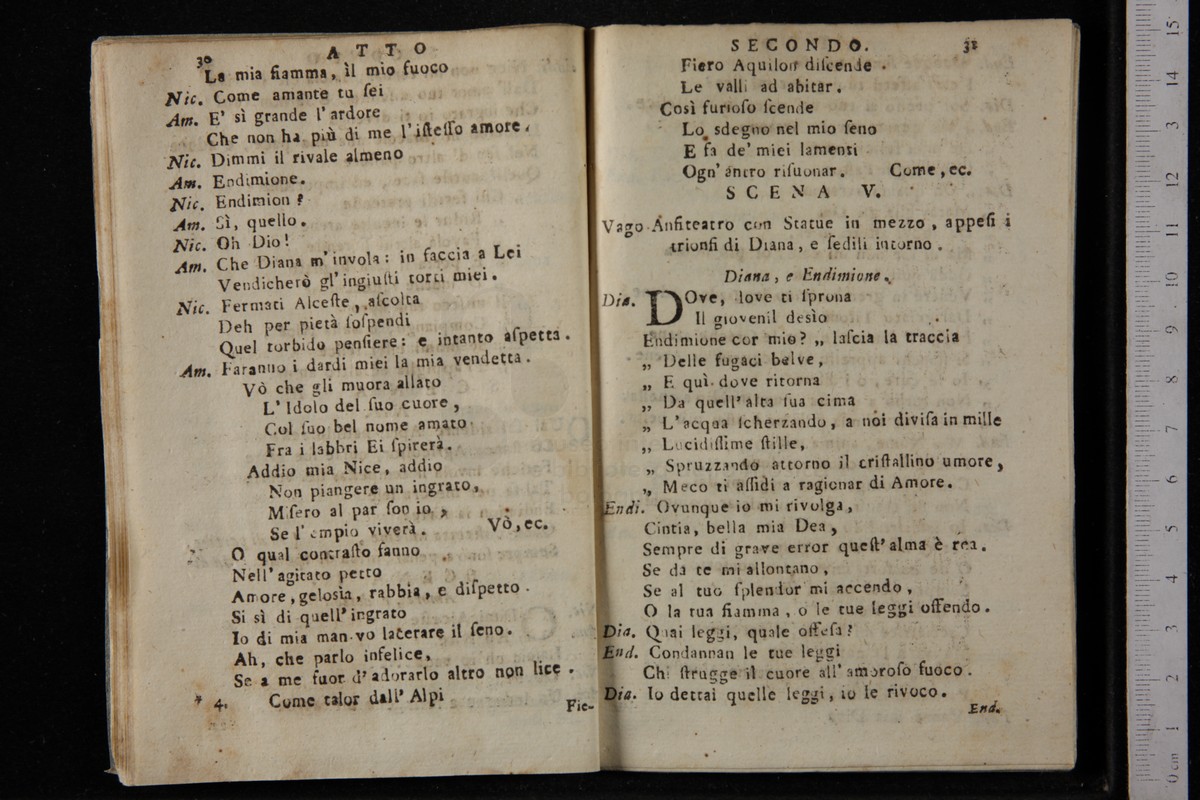 30
ATTO
La mia fiamma, il mio fuoco
Nic. Come amante tu ſei
Am. E' sì grande l'ardore
Che non ha più di me l'iſteſſo amore.
Nic. Dimmi il rivale almeno
Am. Endimione.
Nic. Endimion?
Am. Sì, quello.
Nic. Oh Dio!
Am. Che Diana m'invola: in faccia a Lei
Vendicherò gl'ingiuſti torti miei.
Nic. Fermati Alceſte, aſcolta
Deh per pietà ſoſpendi
Quel torbido penſiere: e intanto aſpetta.
Am. Faranno i dardi miei la mia vendetta.
Vò che gli muora allato
L'Idolo del ſuo cuore,
Col ſuo bel nome amato
Fra i labbri Ei ſpirerà.
Addio mia Nice, addio
Non piangere un ingrato,
Miſero al par ſon io,
Se l'empio viverà. Vò, ec.
O qual contraſto fanno
Nell'agitato petto
Amore, gelosìa, rabbia, e diſpetto.
Si sì di quell'ingrato
Io di mia man vo lacerare il ſeno.
Ah, che parlo infelice,
Se a me fuor d'adorarlo altro non lice.
* 4. Come talor dall'Alpi
Fie-
SECONDO. 31
Fiero Aquilon diſcende
Le valli ad abitar.
Così furioſo ſcende
Lo sdegno nel mio ſeno
E fa de' miei lamenti
Ogn'antro riſuonar. Come, ec.
SCENA V.
Vago Anfiteatro con Statue in mezzo, appeſi i
trionfi di Diana, e ſedili intorno.
Diana, e Endimione.
Dia. DOve, dove ti ſprona
Il giovenil desìo
Endimione cor mio? „ laſcia la traccia
„ Delle fugaci belve,
„ E quì dove ritorna
„ Da quell'alta ſua cima
„ L'acqua ſcherzando, a noi diviſa in mille
„ Lucidiſſime ſtille,
„ Spruzzando attorno il criſtallino umore,
„ Meco ti aſſidi a ragionar di Amore.
Endi. Ovunque io mi rivolga,
Cintia, bella mia Dea,
Sempre di grave error queſt'alma è rea.
Se da te mi allontano,
Se al tuo ſplendor mi accendo,
O la tua fiamma, o le tue leggi offendo.
Dia. Quai leggi, quale offeſa?
End. Condannan le tue leggi
Chi ſtrugge il cuore all'amoroſo fuoco.
Dia. Io dettai quelle leggi, io le rivoco.
End.